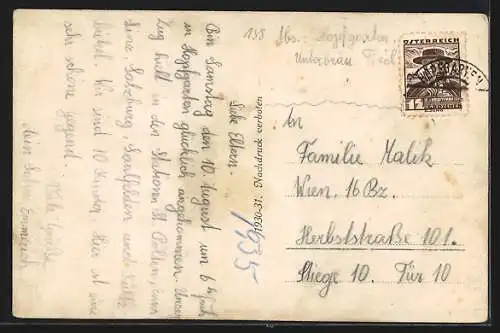 158 Abs.: Hopfgarten
Unterbräu Tirol
ÖSTERREICH
12
HOPFGARTEN
Liebe Eltern.
Bin Samstag den 10. August um 6 h früh
in Hopfgarten glücklich angekommen. Unser
Zug hielt in den Stationen St. Pölten,
Linz, Salzburg, Saalfelden und
Wir sind 10 Kinder. Hier ist eine
sehr schöne Gegend.
Viele Grüße
Euer Sohn Emmerich
1930-31. Nachdruck verboten
1935
An
Familie Malik
Wien. 16 Bz.
Herbststraße 101.
Stiege 10. Tür 10